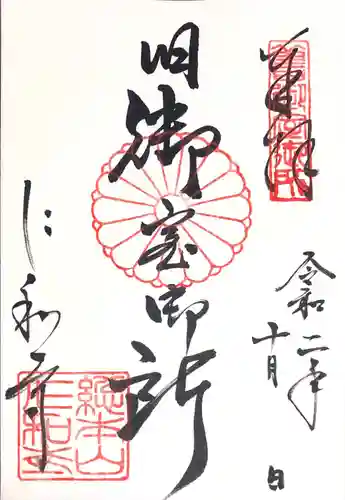 奉拝
令和二年
十月 日
旧御室御所
仁和寺
総本山
仁和寺